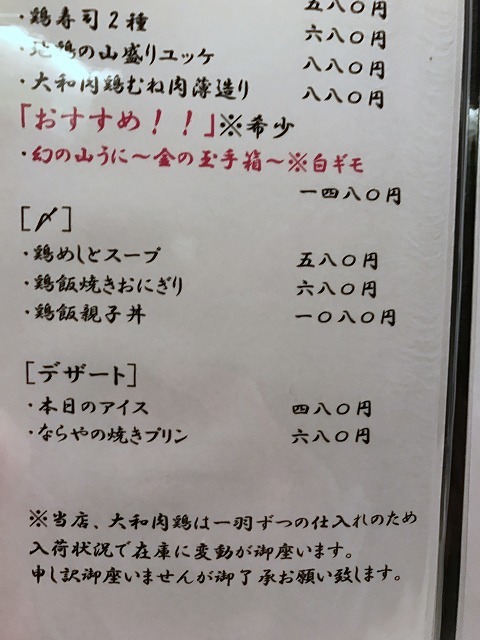 五八〇円
・鶏寿司2種 六八〇円
・地鶏の山盛りユッケ 八八〇円
・大和肉鶏むね肉薄造り 八八〇円
「おすすめ！！」※希少
・幻の山うに～金の玉手箱～※白ギモ
一四八〇円
[〆]
・鶏めしとスープ 五八〇円
・鶏飯焼きおにぎり 六八〇円
・鶏飯親子丼 一〇八〇円
[デザート]
・本日のアイス 四八〇円
・ならやの焼きプリン 六八〇円
※当店、大和肉鶏は一羽ずつの仕入れのため
入荷状況で在庫に変動が御座います。
申し訳御座いませんが御了承お願い致します。